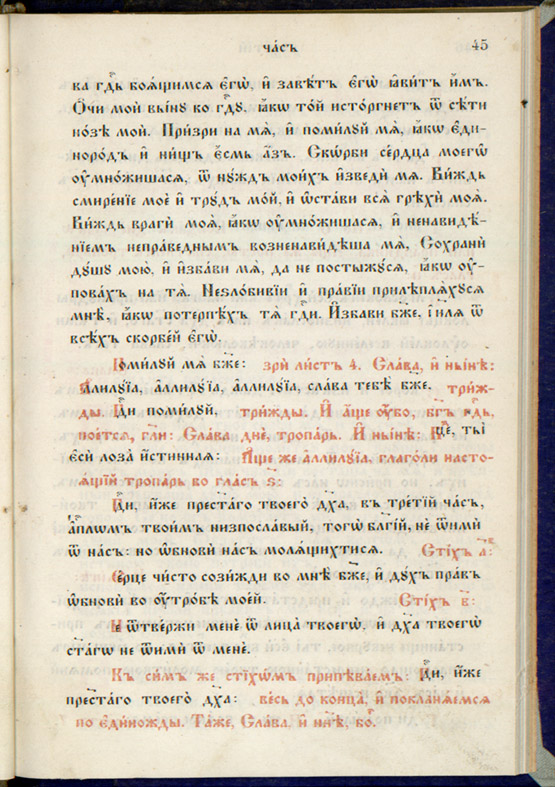 ча́съ 45
ва гдⷭ҇ь боѧ́щимсѧ є҆гѡ̀, и҆ завѣ́тъ є҆гѡ̀ ꙗ҆ви́тъ и҆̀мъ.
Ѻ҆́чи моѝ вы́нꙋ ко гдⷭ҇ꙋ. ꙗ҆́кѡ то́й исто́ргнетъ ѿ сѣ́ти
но́зѣ моѝ. При́зри на мѧ̀, и҆ поми́лꙋй мѧ̀, ꙗ҆́кѡ є҆ди-
норо́дъ и҆ ни́щъ є҆́смь а҆́зъ. Скѡ́рби се́рдца моегѡ̀
ᲂу҆мно́жишасѧ, ѿ нꙋ́ждъ мои́хъ и҆зведи́ мѧ. Ви́ждь
смире́нїе моѐ и҆ трꙋ́дъ мо́й, и҆ ѡ҆ста́ви всѧ̀ грѣхѝ моѧ̀.
Ви́ждь врагѝ моѧ̀, ꙗ҆́кѡ ᲂу҆мно́жишасѧ, и҆ ненави́дѣ-
нїемъ непра́веднымъ возненави́дѣша мѧ̀, Сохранѝ
дꙋ́шꙋ мою̀, и҆ и҆зба́ви мѧ̀, да не постыжꙋ́сѧ, ꙗ҆́кѡ ᲂу҆-
пова́хъ на тѧ̀. Незло́бивїи и҆ пра́вїи прилѣплѧ́хꙋсѧ
мнѣ̀, ꙗ҆́кѡ потерпѣ́хъ тѧ̀ гдⷭ҇и. И҆зба́ви бж҃е, і҆и҃лѧ ѿ
всѣ́хъ скорбе́й є҆гѡ̀.
Поми́лꙋй мѧ̀ бж҃е: зрѝ ли́стъ 4. Сла́ва, и҆ ны́нѣ:
Аллилꙋ́їа, а҆ллилꙋ́їа, а҆ллилꙋ́їа, сла́ва тебѣ̀ бж҃е. три́ж-
ды. Гдⷭ҇и поми́лꙋй, три́жды. И҆ а҆́ще ᲂу҆́бо, бг҃ъ гдⷭ҇ь,
пое́тсѧ, гл҃и: Сла́ва днѐ, тропа́рь. И҆ ны́нѣ: Бцⷣе, ты̀
є҆сѝ лоза̀ и҆́стинная: А҆́ще же а҆ллилꙋ́їа, глаго́ли насто-
ѧ́щїй тропа́рь во гла́съ ѕ҃:
Гдⷭ҇и, и҆́же прест҃а́го твоего̀ дх҃а, въ тре́тїй ча́съ,
а҆пⷭ҇лѡмъ твои́мъ низпосла́вый, тогѡ̀ бл҃гі́й, нѐ ѿимѝ
ѿ на́съ: но ѡ҆бновѝ на́съ молѧ́щихтисѧ. Сті́хъ а҃:
Се́рце чи́сто сози́жди во мнѣ̀ бж҃е, и҆ дꙋ́хъ пра́въ
ѡ҆бновѝ во ᲂу҆тро́бѣ мое́й. Сті́хъ в҃:
Не ѿве́ржи менѐ ѿ лица̀ твоегѡ̀, и҆ дх҃а твоегѡ̀
ст҃а́гѡ не ѿимѝ ѿ менѐ.
Къ си́мъ же стіхѡ́мъ припѣва́емъ: Гдⷭ҇и, и҆́же
прест҃а́го твоего̀ дх҃а: ве́сь до конца̀, и҆ поклонѧ́емсѧ
по є҆ди́ножды. Та́же, Сла́ва, и҆ нн҃ѣ, бо́г: